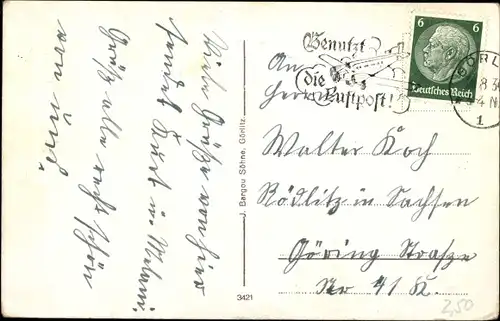 Viele Grüße von hier
sendet Kurt u.
Grüße alle recht schön
von
J. Bargou Söhne, Görlitz.
3421
Benutzt
die
Luftpost!
6 6
Deutsches Reich
GÖRL
1
An
Herrn
Walter Koch
Rödlitz in Sachsen
Göring Straße
Nr 41 K.
2,50